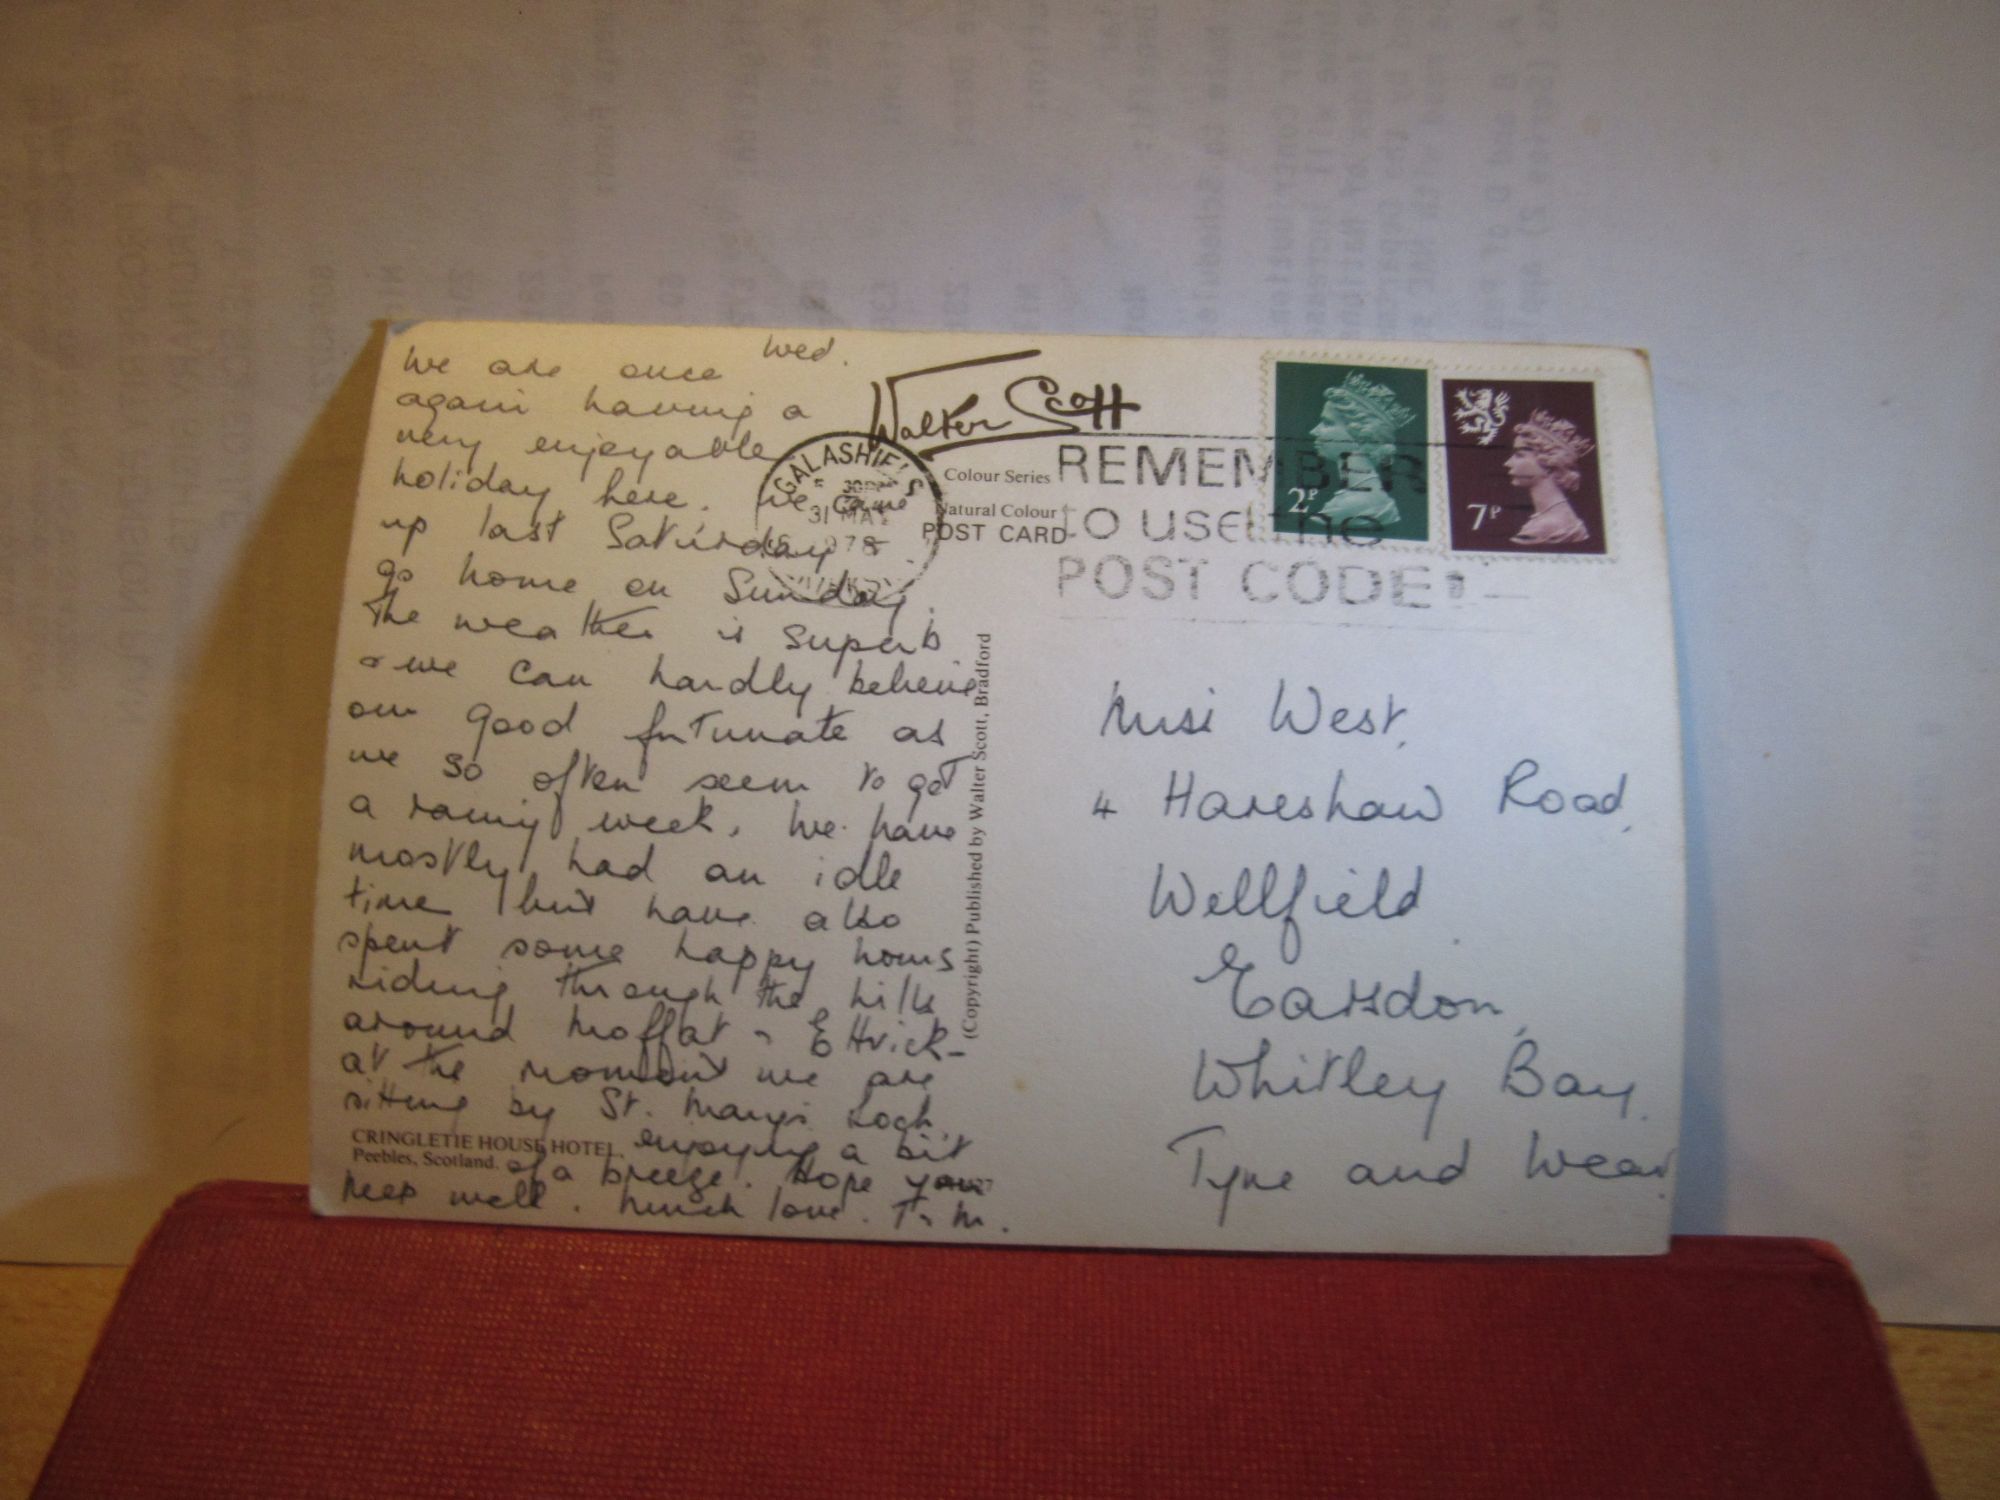 Wed.
We are once
again having a
very enjoyable
holiday here. We came
up last Saturday &
go home on Sunday.
The weather is superb
& we can hardly believe
our good fortunate as
we so often seem to get
a rainy week. We have
mostly had an idle
time but have also
spent some happy hours
riding through the hills
around Moffat & Ettrick -
at the moment we are
sitting by St. Mary's Loch,
enjoying a bit
of a breeze. Hope you
keep well. Much love. T & M.
CRINGLETIE HOUSE HOTEL.
Peebles, Scotland.
Walter Scott
Colour Series
Natural Colour
POST CARD
(Copyright) Published by Walter Scott, Bradford
GALASHIELS
31 MAY
1978
REMEMBER
to use the
POST CODE
2P
7P
Miss West,
4 Hareshaw Road,
Wellfield
Earsdon,
Whitley Bay.
Tyne and Wear.